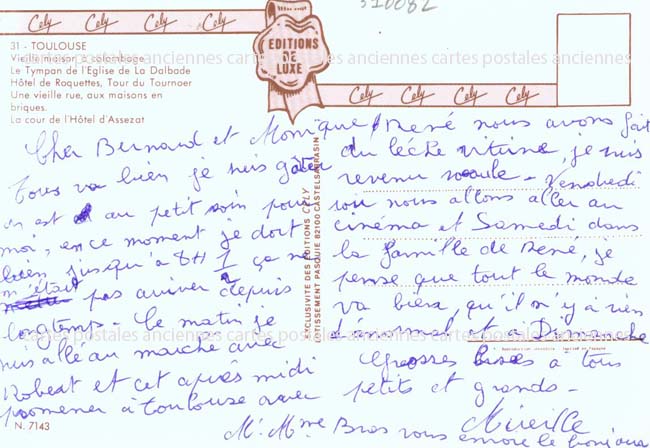 310082
Cely Cely Cely Cely
EDITIONS
DE
LUXE
Cely Cely Cely Cely
31 - TOULOUSE
Vieille maison à colombage
Le Tympan de l'Eglise de La Dalbade
Hôtel de Roquettes, Tour du Tournoer
Une vieille rue, aux maisons en
briques.
La cour de l'Hôtel d'Assezat
cartes postales anciennes cartes postales anciennes cartes postales anciennes
Cher Bernard et Monique
Tous va bien je suis gâter
on est au petit soin pour
moi. en ce moment je dort
bien jusqu'à 8H ça ne
m'était pas arriver depuis
longtemps. le matin je
suis allé au marche avec
Robert et cet après midi
promener à Toulouse avec
René nous avons fait
du léche vitrine, je suis
revenu seule - Vendredi
nous allons aller au
cinéma et Samedi dans
la famille de René, je
pense que tout le monde
va bien, qu'il n'y à rien
d'anormal, et à Dimanche
Grosses bises a tous
petits et grands -
Mireille
Mr Mme Bros vous envoie le bonjour
EXCLUSIVITE DES EDITIONS CELY
LOTISSEMENT PASQUIE 82100 CASTELSARRASIN
cartes postales anciennes cartes postales anciennes cartes postales anciennes
N. 7143